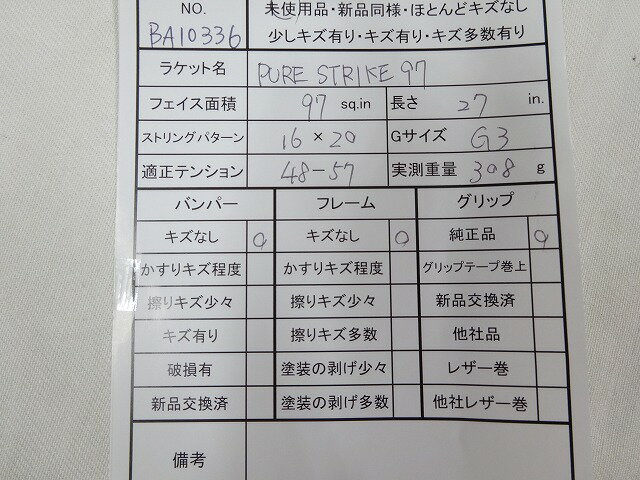 NO. 未使用品・新品同様・ほとんどキズなし
BA10336 少しキズ有り・キズ有り・キズ多数有り
ラケット名 PURE STRIKE 97
フェイス面積 97 sq.in 長さ 27 in.
ストリングパターン 16×20 Gサイズ G3
適正テンション 48-57 実測重量 308 g
バンパー フレーム グリップ
キズなし ○ キズなし ○ 純正品 ○
かすりキズ程度 かすりキズ程度 グリップテープ巻上
擦りキズ少々 擦りキズ少々 新品交換済
キズ有り 擦りキズ多数 他社品
破損有 塗装の剥げ少々 レザー巻
新品交換済 塗装の剥げ多数 他社レザー巻
備考